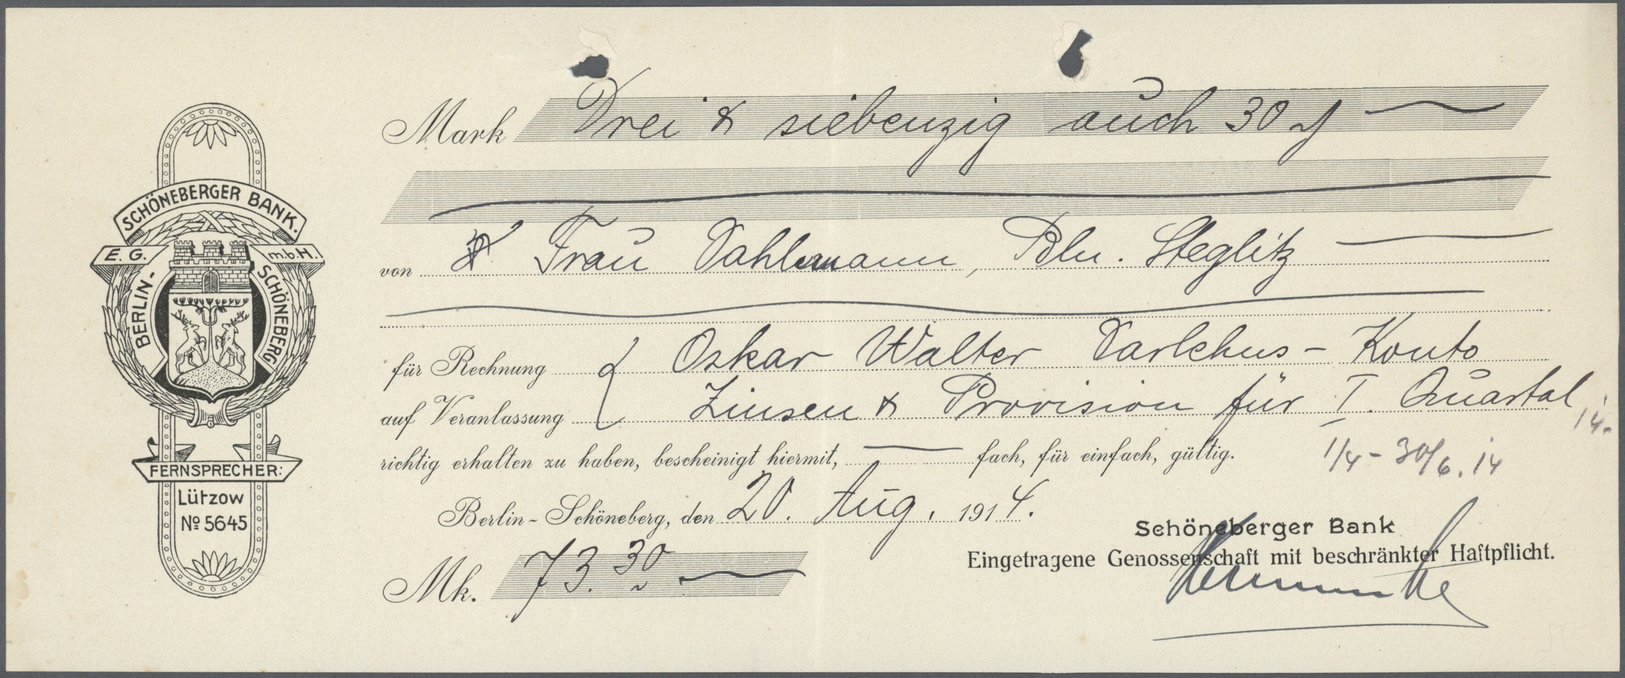 SCHÖNEBERGER BANK.
E. G. m.b.H.
BERLIN-SCHÖNEBERG
FERNSPRECHER:
Lützow
No 5645
Mark Drei & siebenzig auch 30 ₰
von Frau Dahlemann, Bln. Steglitz
für Rechnung Oskar Walter Darlehns-Konto
auf Veranlassung Zinsen & Provision für I. Quartal 14.
richtig erhalten zu haben, bescheinigt hiermit, fach, für einfach, gültig.
1/4 - 30/6. 14
Berlin-Schöneberg, den 20. Aug. 1914.
Schöneberger Bank
Eingetragene Genossenschaft mit beschränkter Haftpflicht.
Mk. 73.30